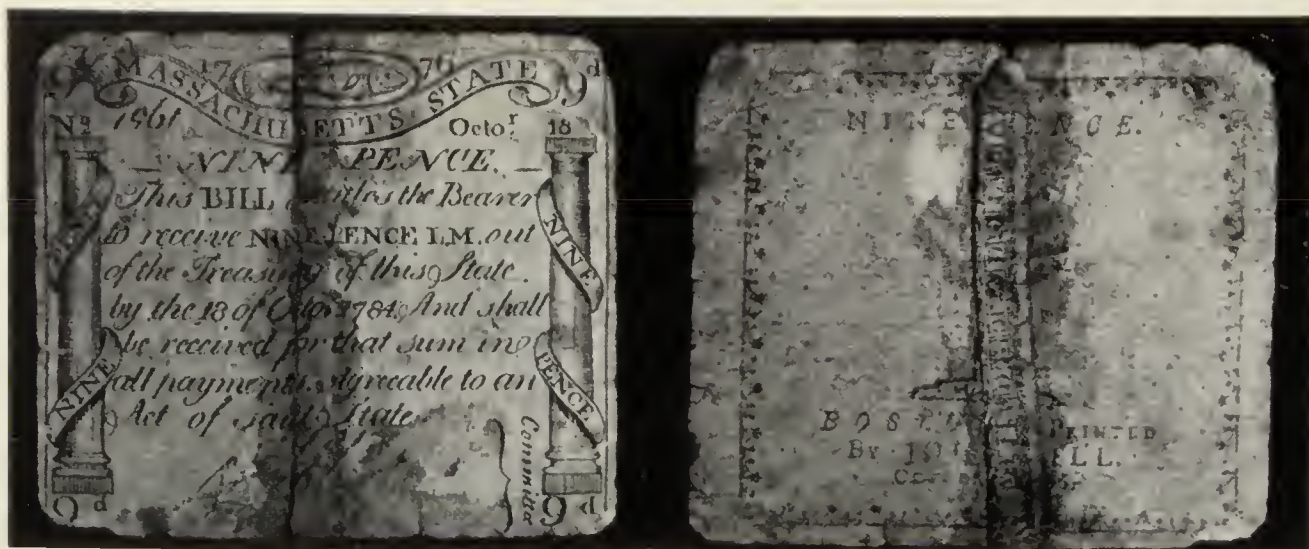 9d 17 76 9d
MASSACHUSETTS STATE
No 1961 Octor 18
NINE PENCE.
This BILL entitles the Bearer
to receive NINE PENCE LM. out
of the Treasury of this State
by the 18 of Octor 1784. And shall
be received for that sum in
all payments Agreeable to an
Act of said State
PENCE
NINE
NINE
PENCE
Committee
9d 9d
NINE PENCE.
BOSTON PRINTED
By